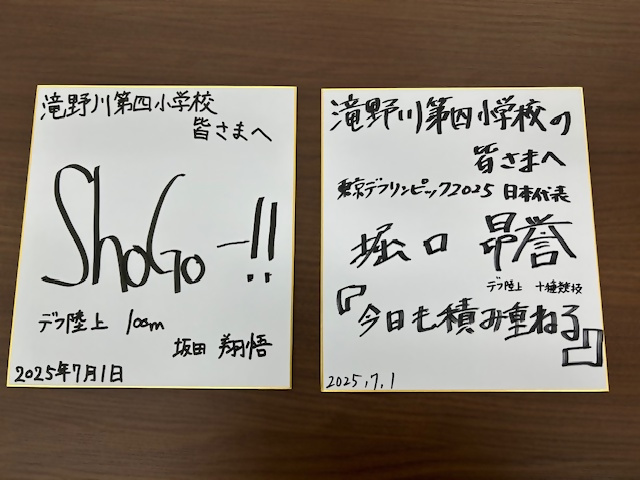 滝野川第四小学校
皆さまへ
ShoGo ー!!
デフ陸上 100m
坂田 翔悟
2025年7月1日
滝野川第四小学校の
皆さまへ
東京デフリンピック2025 日本代表
堀口 昂誉
デフ陸上 十種競技
『今日も積み重ねる』
2025,7,1